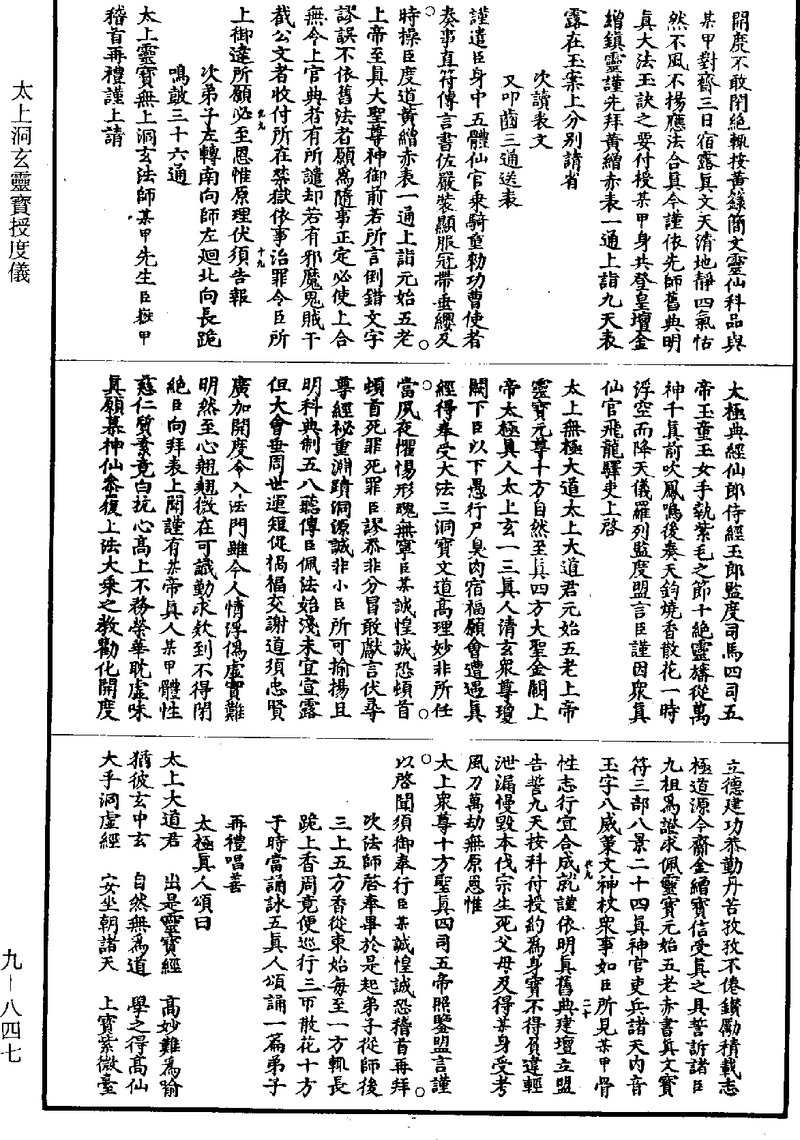 開度不敢閉絕輒按黃籙簡文靈仙科品與
某甲對齋三日宿露真文天清地靜四氣恬
然不風不揚應法合真令謹依先師舊典明
真大法玉訣之要付授某甲身共登皇壇金
繒鎮靈謹先拜黃繒赤表一通上詣九天表
露在玉案上分別請省
次讀表文
又叩齒三通送表
謹遣臣身中五體仙官乘騎重勑功曹使者
奏事直符傳言書佐嚴裝顯服冠帶垂纓及
時操臣度道黃繒赤表一通上詣元始五老
上帝至真大聖尊神御前若所言倒錯文字
謬誤不依舊法者願為隨事正定必使上合
無令上官典者有所譴却若有邪魔鬼賊干
截公文者收付所在禁獄依事治罪令臣所
上御達所願必至恩惟原理伏須告報
次弟子左轉南向師左迴北向長跪
鳴皷三十六通
太上靈寶無上洞玄法師某甲先生臣嶽甲
稽首再禮謹上請
太極典經仙郎侍經玉郎監度司馬四司五
帝玉童玉女手執紫毛之節十絕靈旛從萬
神千真前吹鳳鳴後奏天鈞燒香散花一時
浮空而降天儀羅列監度盟言臣謹因衆真
仙官飛龍驛吏上啓
太上無極大道太上大道君元始五老上帝
靈寶元尊十方自然至真四方大聖金闕上
帝太極真人太上玄一三真人清玄衆尊瓊
闕下臣以下愚行尸臭肉宿福願會遭遇真
經得奉受大法三洞寶文道高理妙非所任
當夙夜懼惕形魄無寧臣某誠惶誠恐頓首
頓首死罪死罪臣謬忝非分冒敢獻言伏尋
尊經祕重淵賾洞源誠非小臣所可揄揚且
明科典制五八聽傳臣佩法始淺未宜宣露
但大會垂周世運短促禍福交謝道須忠賢
廣加開度令入法門雖今人情浮偽虛實難
明然至心翹翹微在可識勤求欸到不得閉
絕臣向拜表上聞謹有某帝真人某甲體性
慈仁質素竟白抗心高上不務榮華耽虛味
真願慕神仙叅復上法大乘之教勸化開度
立德建功恭勤丹苦孜孜不倦鑚勵積載志
極道源令齋金繒寶信受真之具誓訴諸臣
九祖為證求佩靈寶元始五老赤書真文寶
符三部八景二十四真神官吏兵諸天內音
玉字八威策文神杖衆事如臣所見某甲骨
性志行宜合成就謹依明真舊典建壇立盟
告誓九天按科付授約為身寶不得負違輕
泄漏慢毀本伐宗生死父母及得某身受考
風刀萬劫無原恩惟
太上衆尊十方聖真四司五帝照鑒盟言謹
以啓聞須御奉行臣某誠惶誠恐稽首再拜
次法師啓奉畢於是起弟子從師後
三上五方香從東始每至一方輒長
跪上香周竟便巡行三帀散花十方
于時當誦詠五真人頌誦一篇弟子
再禮唱善
太極真人頌曰
太上大道君　出是靈寶經　高妙難為喻
猶彼玄中玄　自然無為道　學之得高仙
大乎洞虛經　安坐朝諸天　上寶紫微臺
太上洞玄靈寶授度儀
九－八四七